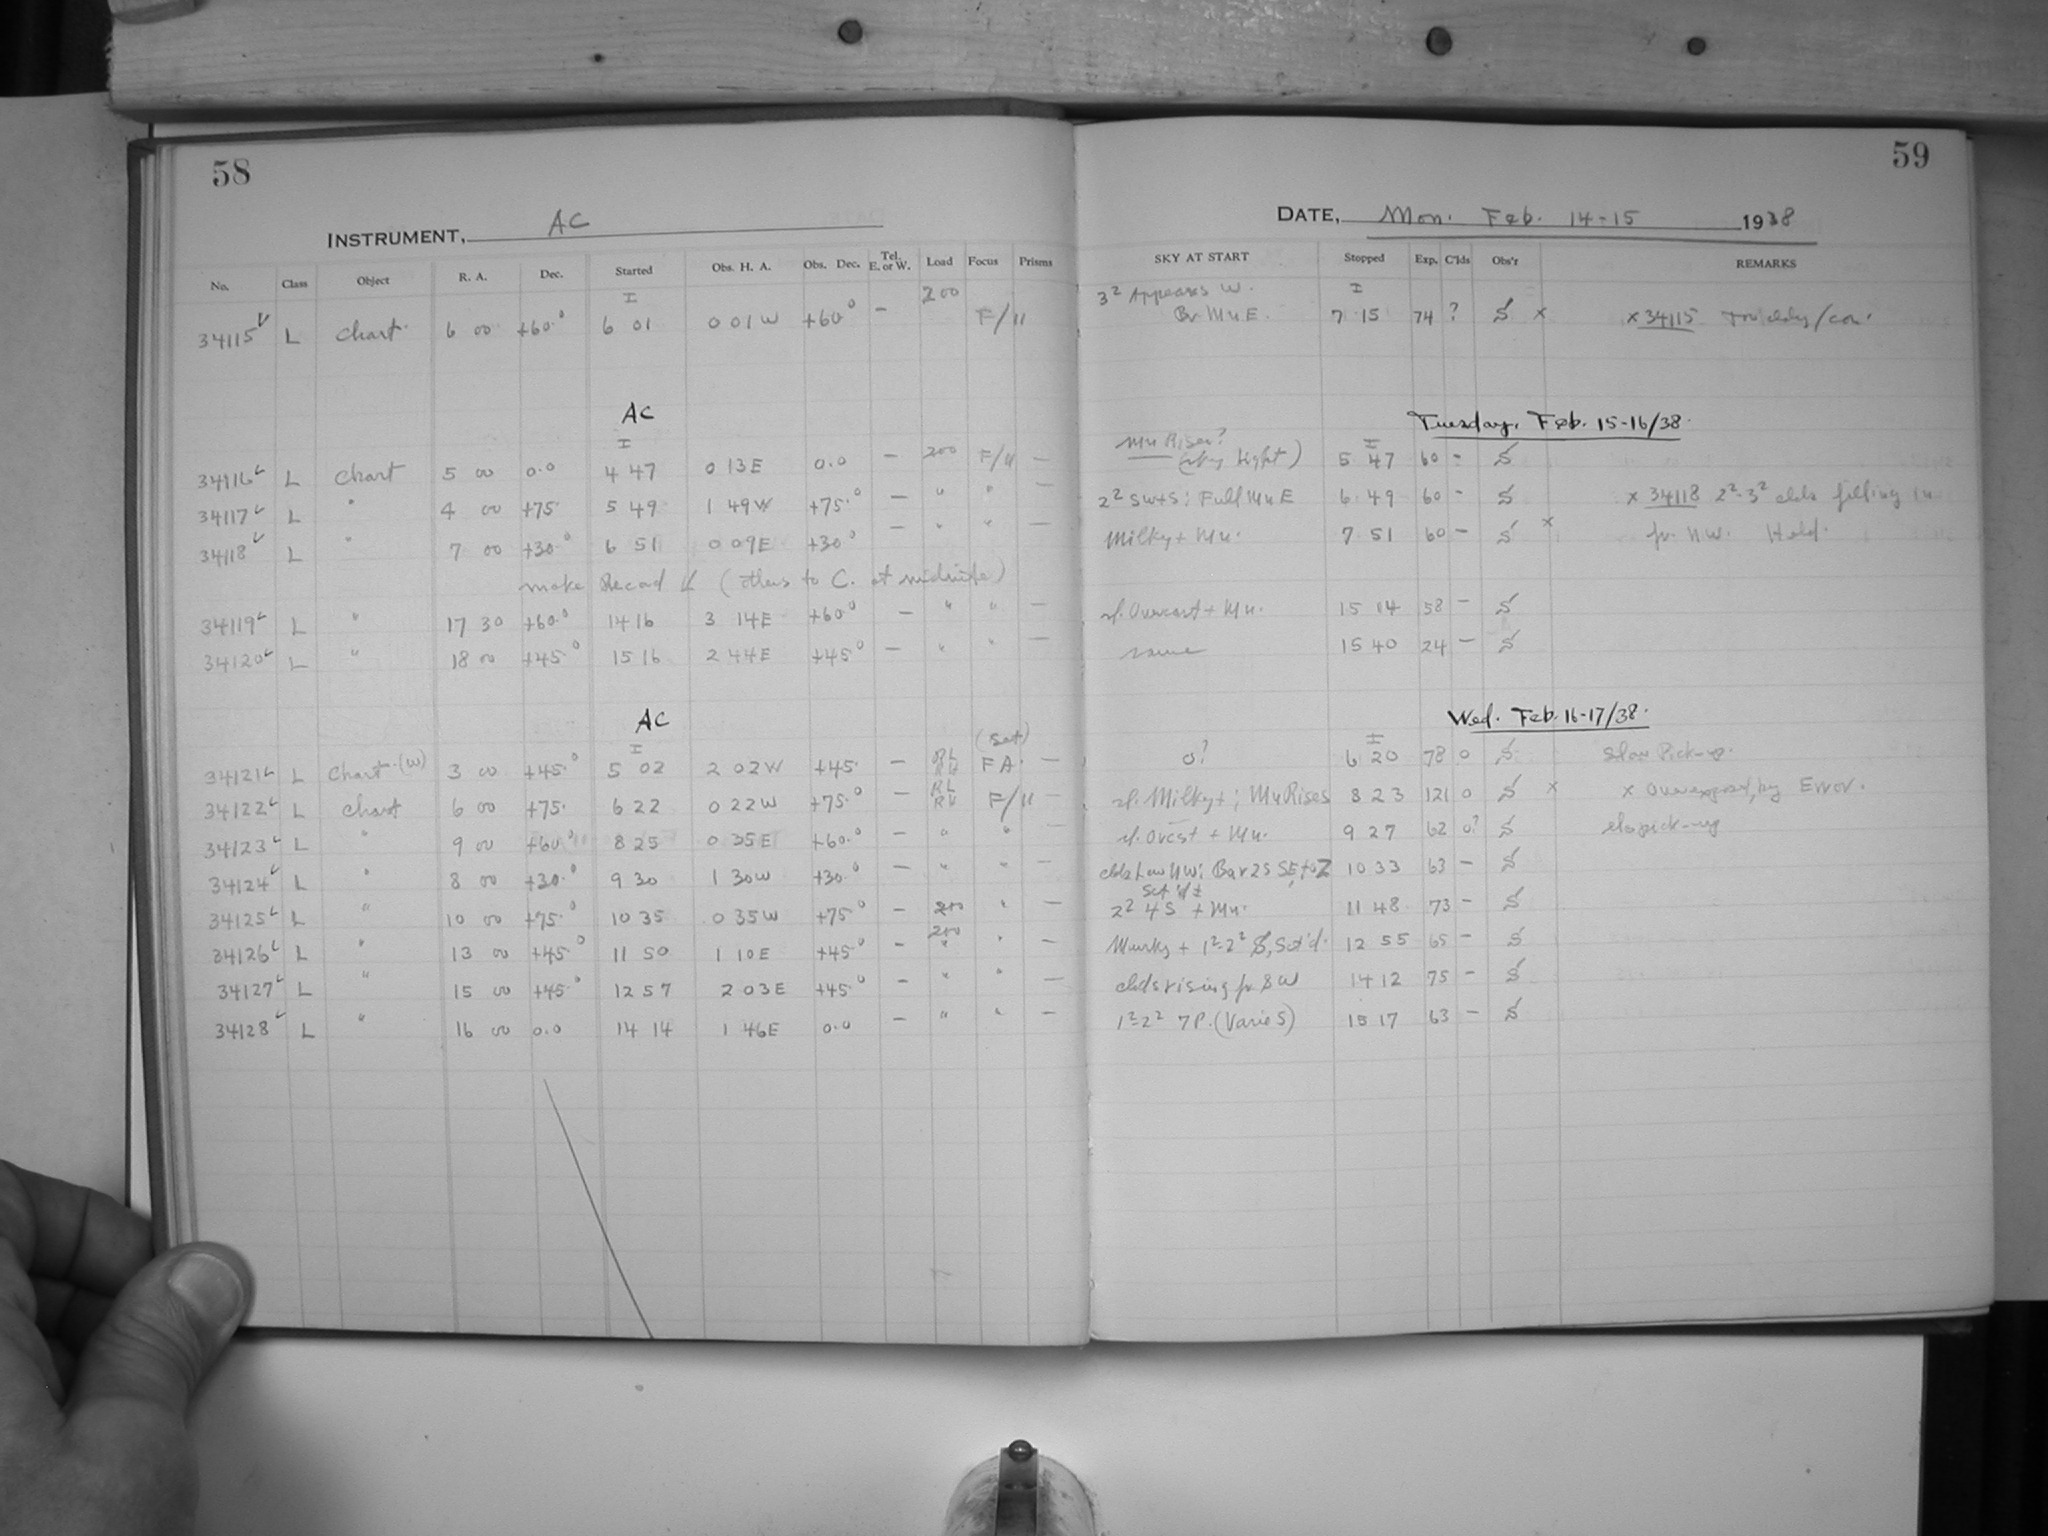 58
59
INSTRUMENT, AC
DATE, Mon. Feb. 14-15 1938
No. Class Object R. A. Dec. Started Obs. H. A. Obs. Dec. Tel. E. or W. Load Focus Prisms SKY AT START Stopped Exp. C'lds Obs'r REMARKS
I 200 3² Appears W. I
34115 L Chart 6 00 +60.° 6 01 0 01 W +60° - F/11 Br. Mn E. 7 15 74 ? S x x 34115
AC Tuesday, Feb. 15-16/38.
I Mn Rises? I
34116 L Chart 5 00 0.0 4 47 0 13 E 0.0 - 200 F/11 - (sky light) 5 47 60 - S
34117 L " 4 00 +75. 5 49 1 49 W +75.° - " " - 2² SW+S; Full Mn E 6 49 60 - S x 34118 2²-3² clds filling in
34118 L " 7 00 +30.° 6 51 0 09 E +30° - " " - Milky + Mn. 7 51 60 - S x fr. NW. Held.
make Record (others to C. at midnite)
34119 L " 17 30 +60.° 14 16 3 14 E +60° - " " - sl. Overcast + Mn. 15 14 58 - S
34120 L " 18 00 +45.° 15 16 2 44 E +45° - " " - same 15 40 24 - S
AC Wed. Feb. 16-17/38.
I (Set) I
34121 L Chart (W) 3 00 +45.° 5 02 2 02 W +45. - RL RH FA. - 0? 6 20 78 0 S Slow Pick-up.
34122 L Chart 6 00 +75. 6 22 0 22 W +75.° - RL RH F/11 - sl. Milky+; Mn Rises 8 23 121 0 S x x Overexposed, by Error.
34123 L " 9 00 +60.° 8 25 0 35 E +60.° - " " - sl. Ovcst + Mn. 9 27 62 0? S slo pick-up
34124 L " 8 00 +30.° 9 30 1 30 W +30.° - " " - clds Low NW; Bar 2S SE to Z 10 33 63 - S
34125 L " 10 00 +75.° 10 35 0 35 W +75.° - 200 " - 2² 4S + Mn. 11 48 73 - S
200
34126 L " 13 00 +45° 11 50 1 10 E +45.° - " " - Murky + 1²-2² S, Sct'd. 12 55 65 - S
34127 L " 15 00 +45.° 12 57 2 03 E +45.° - " " - clds rising fr SW 14 12 75 - S
34128 L " 16 00 0.0 14 14 1 46 E 0.0 - " " - 1²-2² 7P. (Varies) 15 17 63 - S